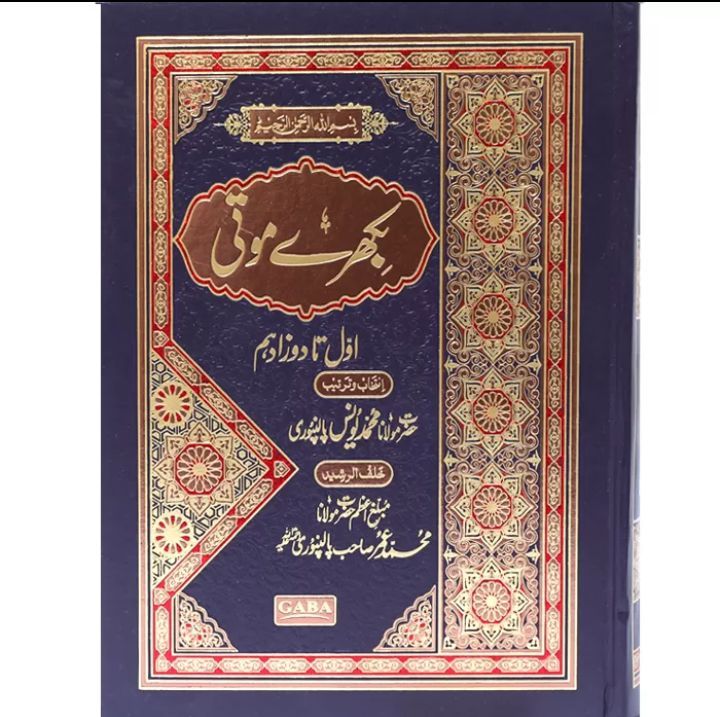 بسم الله الرحمن الرحيم
بکھرے موتی
اوّل تا دوازدہم
انتخاب و ترتیب
حضرت مولانا محمد یونس پالنپوری
خلف الرشید
مبلغ اعظم حضرت مولانا
محمد عمر صاحب پالنپوری رحمۃ اللہ علیہ
GABA